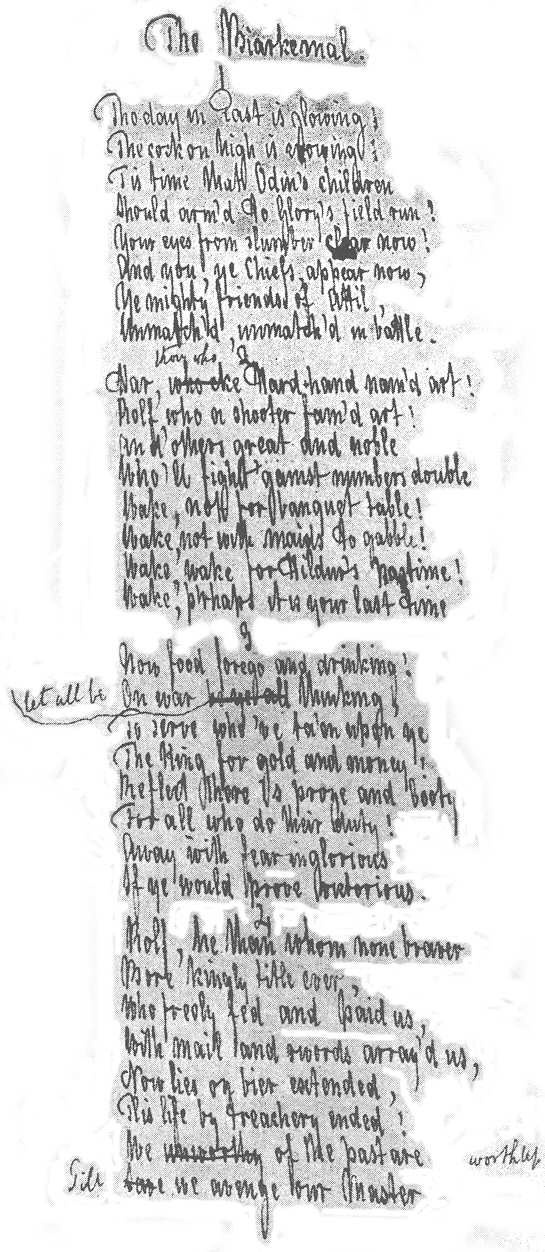 The Biarkemal.
The day in East is glowing;
The cock on high is crowing;
Tis time that Odin's children
Should arm'd to Glory's field run!
Your eyes from slumber clear now!
And you, ye Chiefs, appear now,
Ye mighty friends of Attil,
Unmatch'd, unmatch'd in battle.
thou who
Har, who eke Hard-hand nam'd art!
Rolf who a shooter fam'd art!
And others great and noble
Who'll fight 'gainst numbers double
Wake, not for banquet table!
Wake, not with maids to gabble!
Wake, wake for Hildur's pastime!
Wake, p'rhaps it is your last time
3
Now food forego and drinking!
let all be On war be ye all thinking,
To serve who've ta'en upon ye
The King for gold and money!
Reflect there is praise and booty
For all who do their duty!
Away with fear inglorious
If ye would prove victorious.
Rolf, the Man whom none braver
Bore kingly title ever,
Who freely fed and paid us,
With mail and swords array'd us,
Now lies on bier extended,
His life by treachery ended!
We unworthy of the past are worthless
Till we avenge our Master